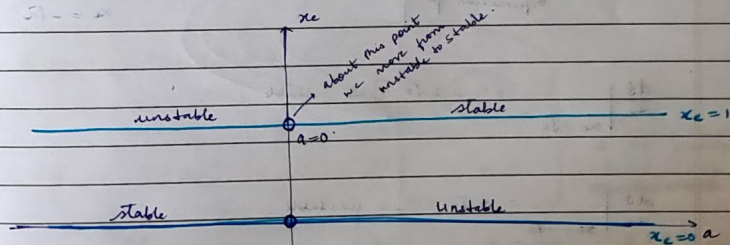 xe
about this point
we move from
unstable to stable.
unstable
stable
xe = 1
a=0.
stable
unstable
a
xe=0